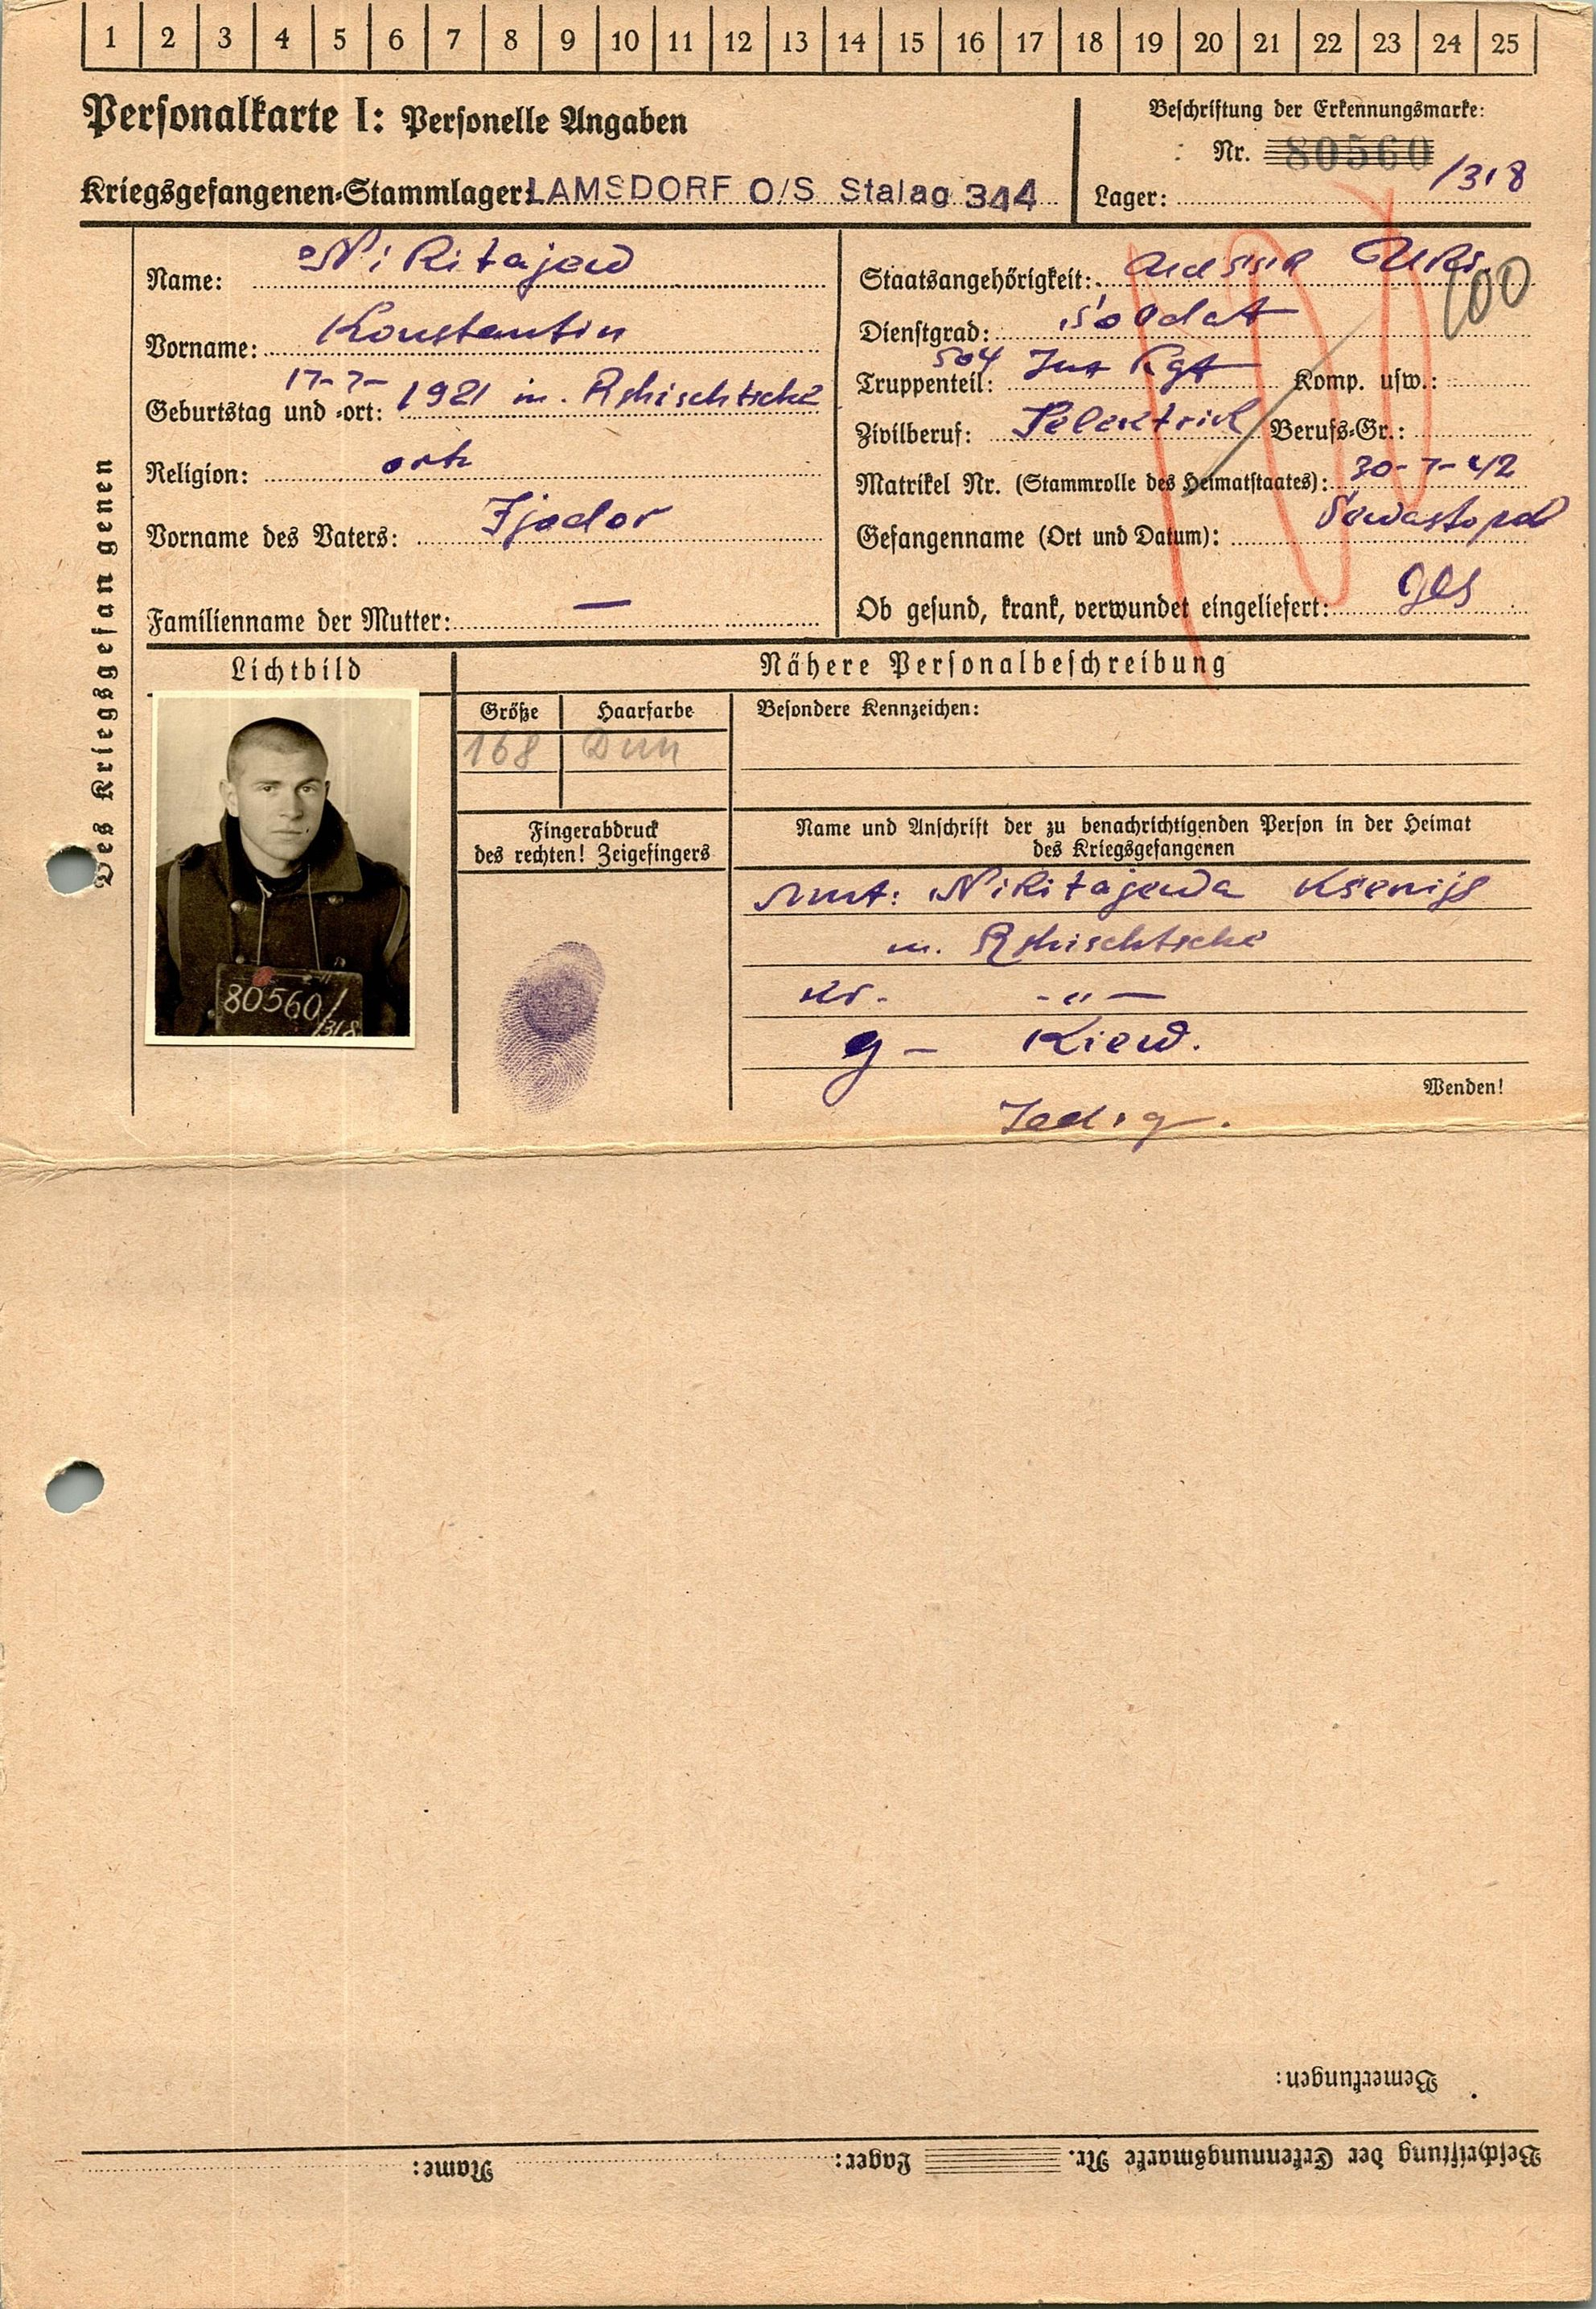 1 2 3 4 5 6 7 8 9 10 11 12 13 14 15 16 17 18 19 20 21 22 23 24 25
Personalkarte I: Personelle Angaben
Beschriftung der Erkennungsmarke:
Nr. 80560
Kriegsgefangenen-Stammlager: LAMSDORF O/S Stalag 344
Lager: /318
Des Kriegsgefangenen
Name: Nikitajew
Vorname: Konstantin
17-7-
Geburtstag und -ort: 1921 in. Rshischtsche
Religion: orth
Vorname des Vaters: Fjodor
Familienname der Mutter: —
Staatsangehörigkeit: Ukr.
100
Dienstgrad: Soldat
Truppenteil: 504 Inf Rgt Komp. usw.:
Zivilberuf: Berufs-Gr.:
Matrikel Nr. (Stammrolle des Heimatstaates): 30-7-42
Gefangenname (Ort und Datum): Sewastopol
Ob gesund, krank, verwundet eingeliefert: ges
Lichtbild
Nähere Personalbeschreibung
Größe Haarfarbe
168
Besondere Kennzeichen:
Fingerabdruck
des rechten! Zeigefingers
80560/
318
Name und Anschrift der zu benachrichtigenden Person in der Heimat
des Kriegsgefangenen
Nikitajewa Ksenija
in. Rshischtsche
kr. -"-
g- Kiew.
Wenden!
Ledig.
Bemerkungen:
Beschriftung der Erkennungsmarke Nr. Lager: Name: